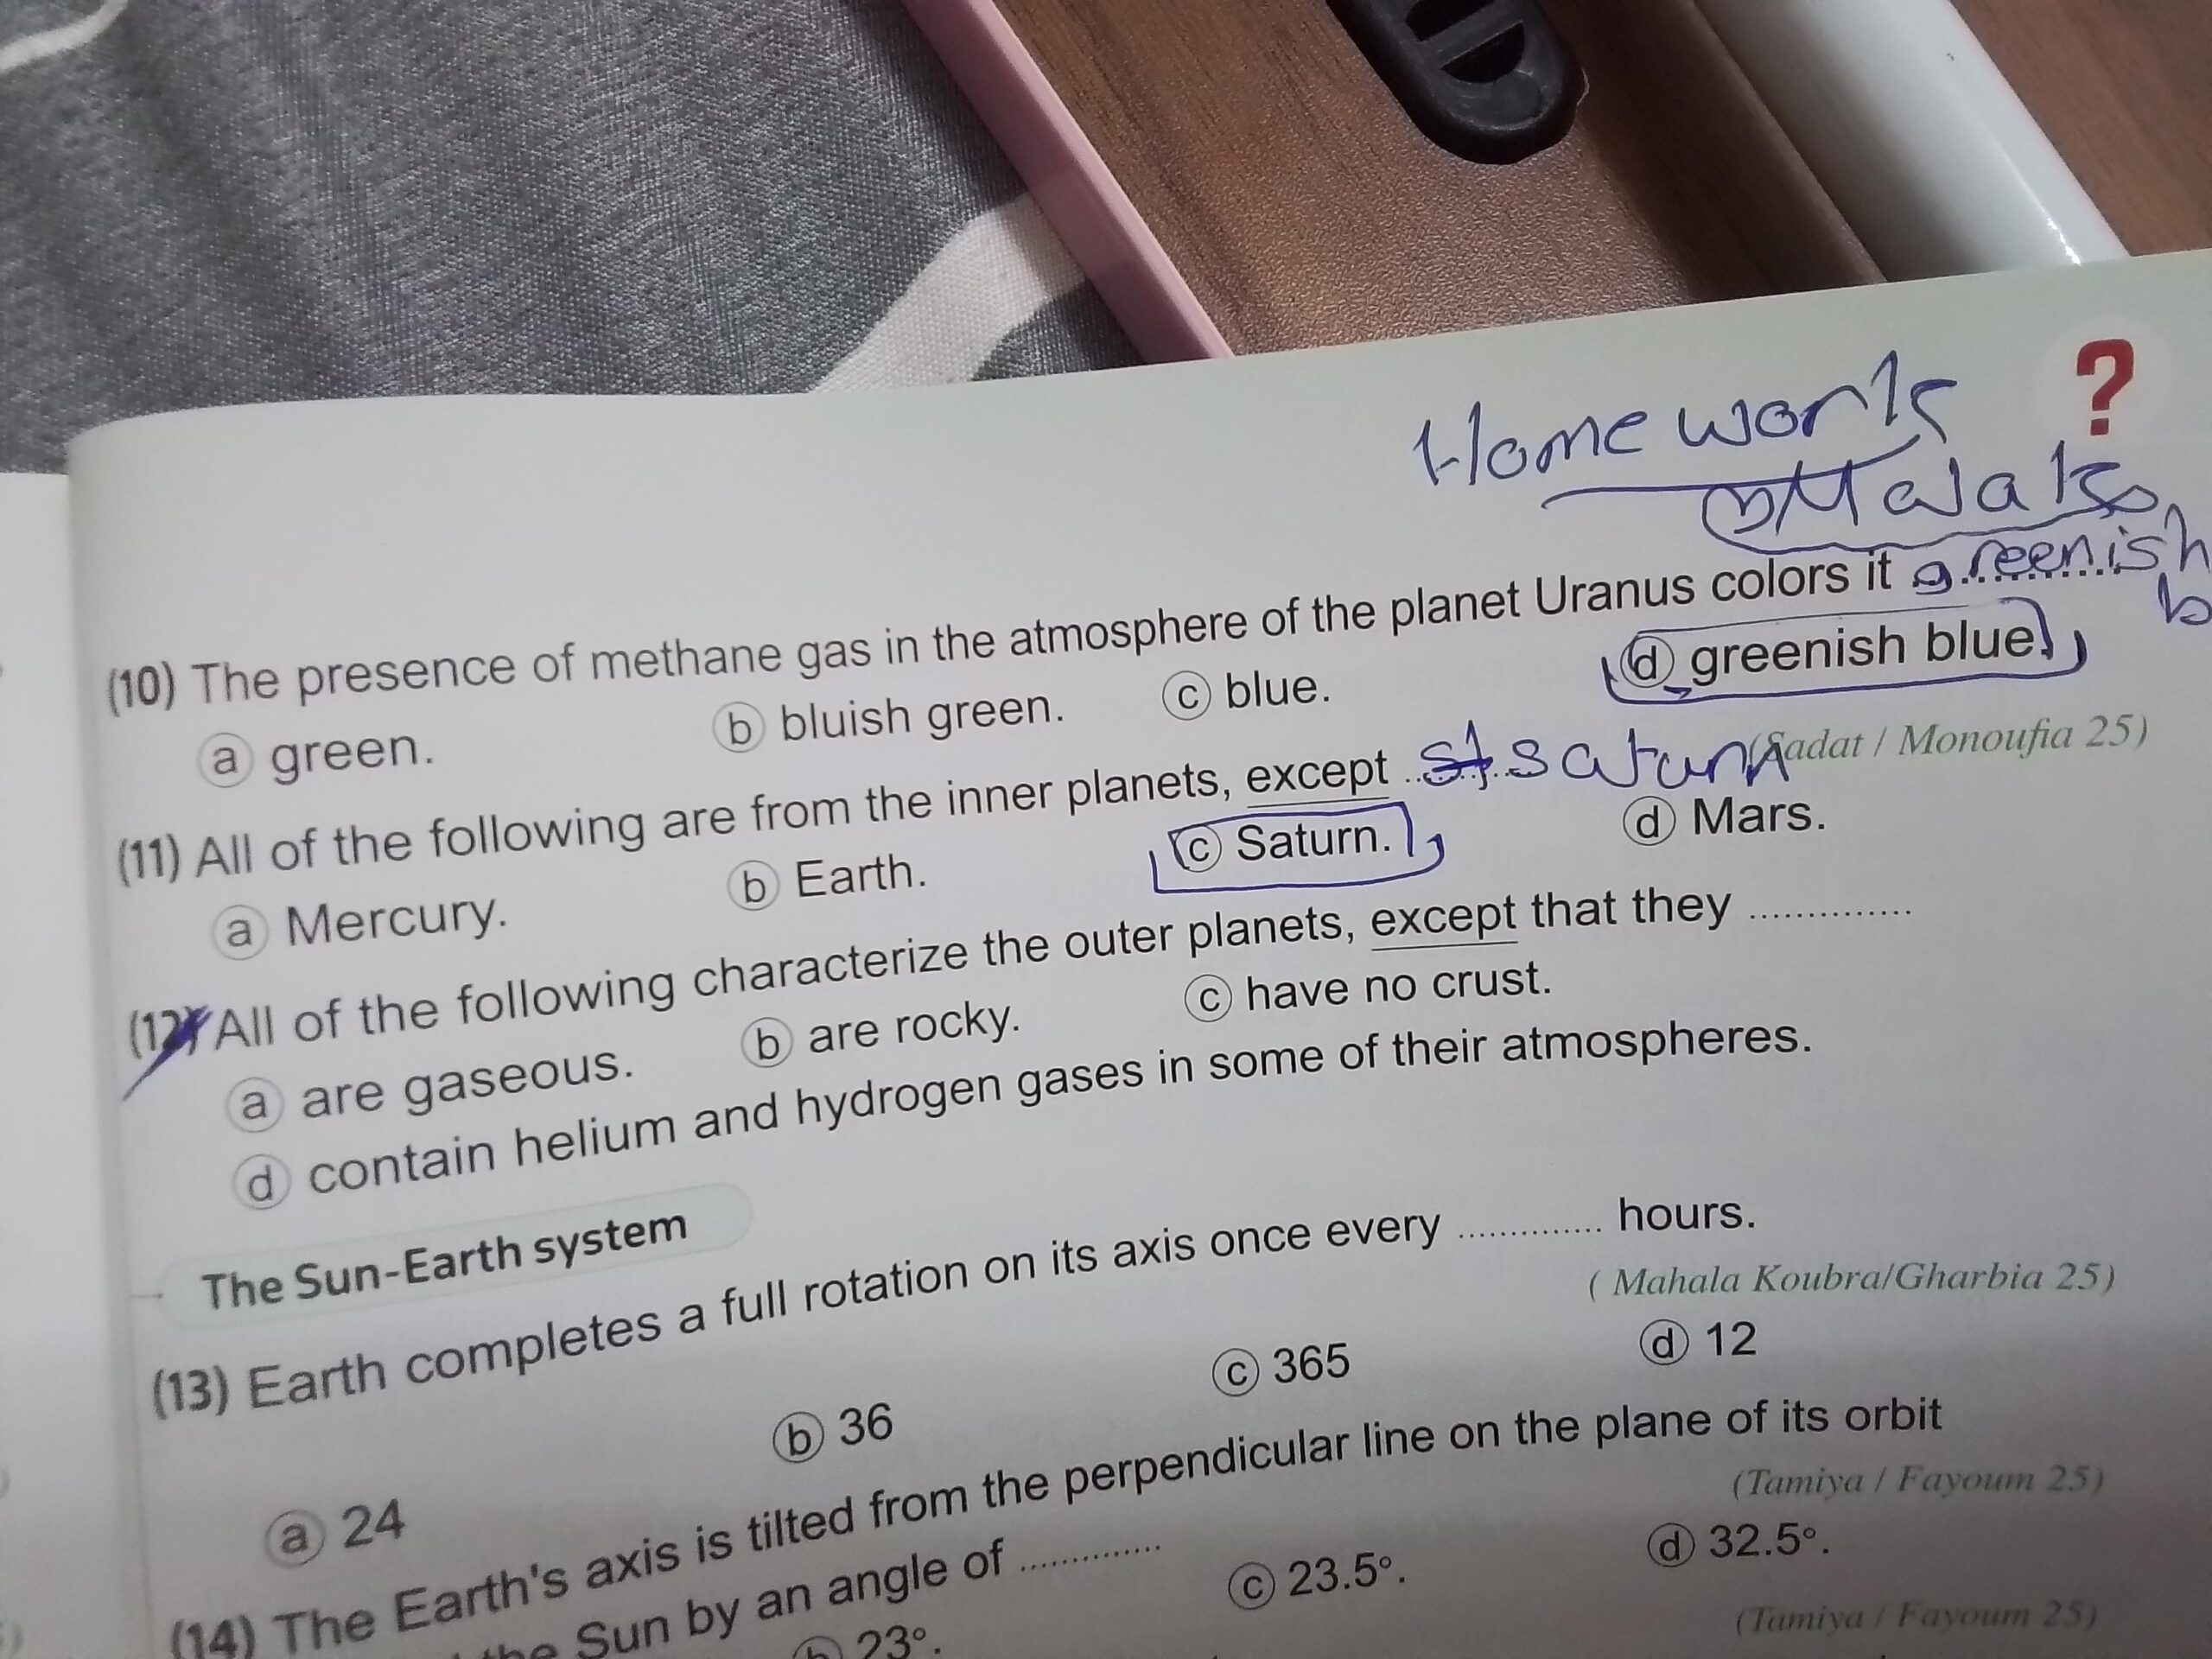 ?
Home work
Malak
(10) The presence of methane gas in the atmosphere of the planet Uranus colors it greenish b
a green. b bluish green. c blue. d greenish blue.
(Sadat / Monoufia 25)
(11) All of the following are from the inner planets, except .............. saturn
a Mercury. b Earth. c Saturn. d Mars.
(12) All of the following characterize the outer planets, except that they ..............
a are gaseous. b are rocky. c have no crust.
d contain helium and hydrogen gases in some of their atmospheres.
The Sun-Earth system
(13) Earth completes a full rotation on its axis once every .............. hours.
( Mahala Koubra/Gharbia 25)
a 24 b 36 c 365 d 12
(14) The Earth's axis is tilted from the perpendicular line on the plane of its orbit
(Tamiya / Fayoum 25)
the Sun by an angle of ..............
b 23°. c 23.5°. d 32.5°.
(Tamiya / Fayoum 25)